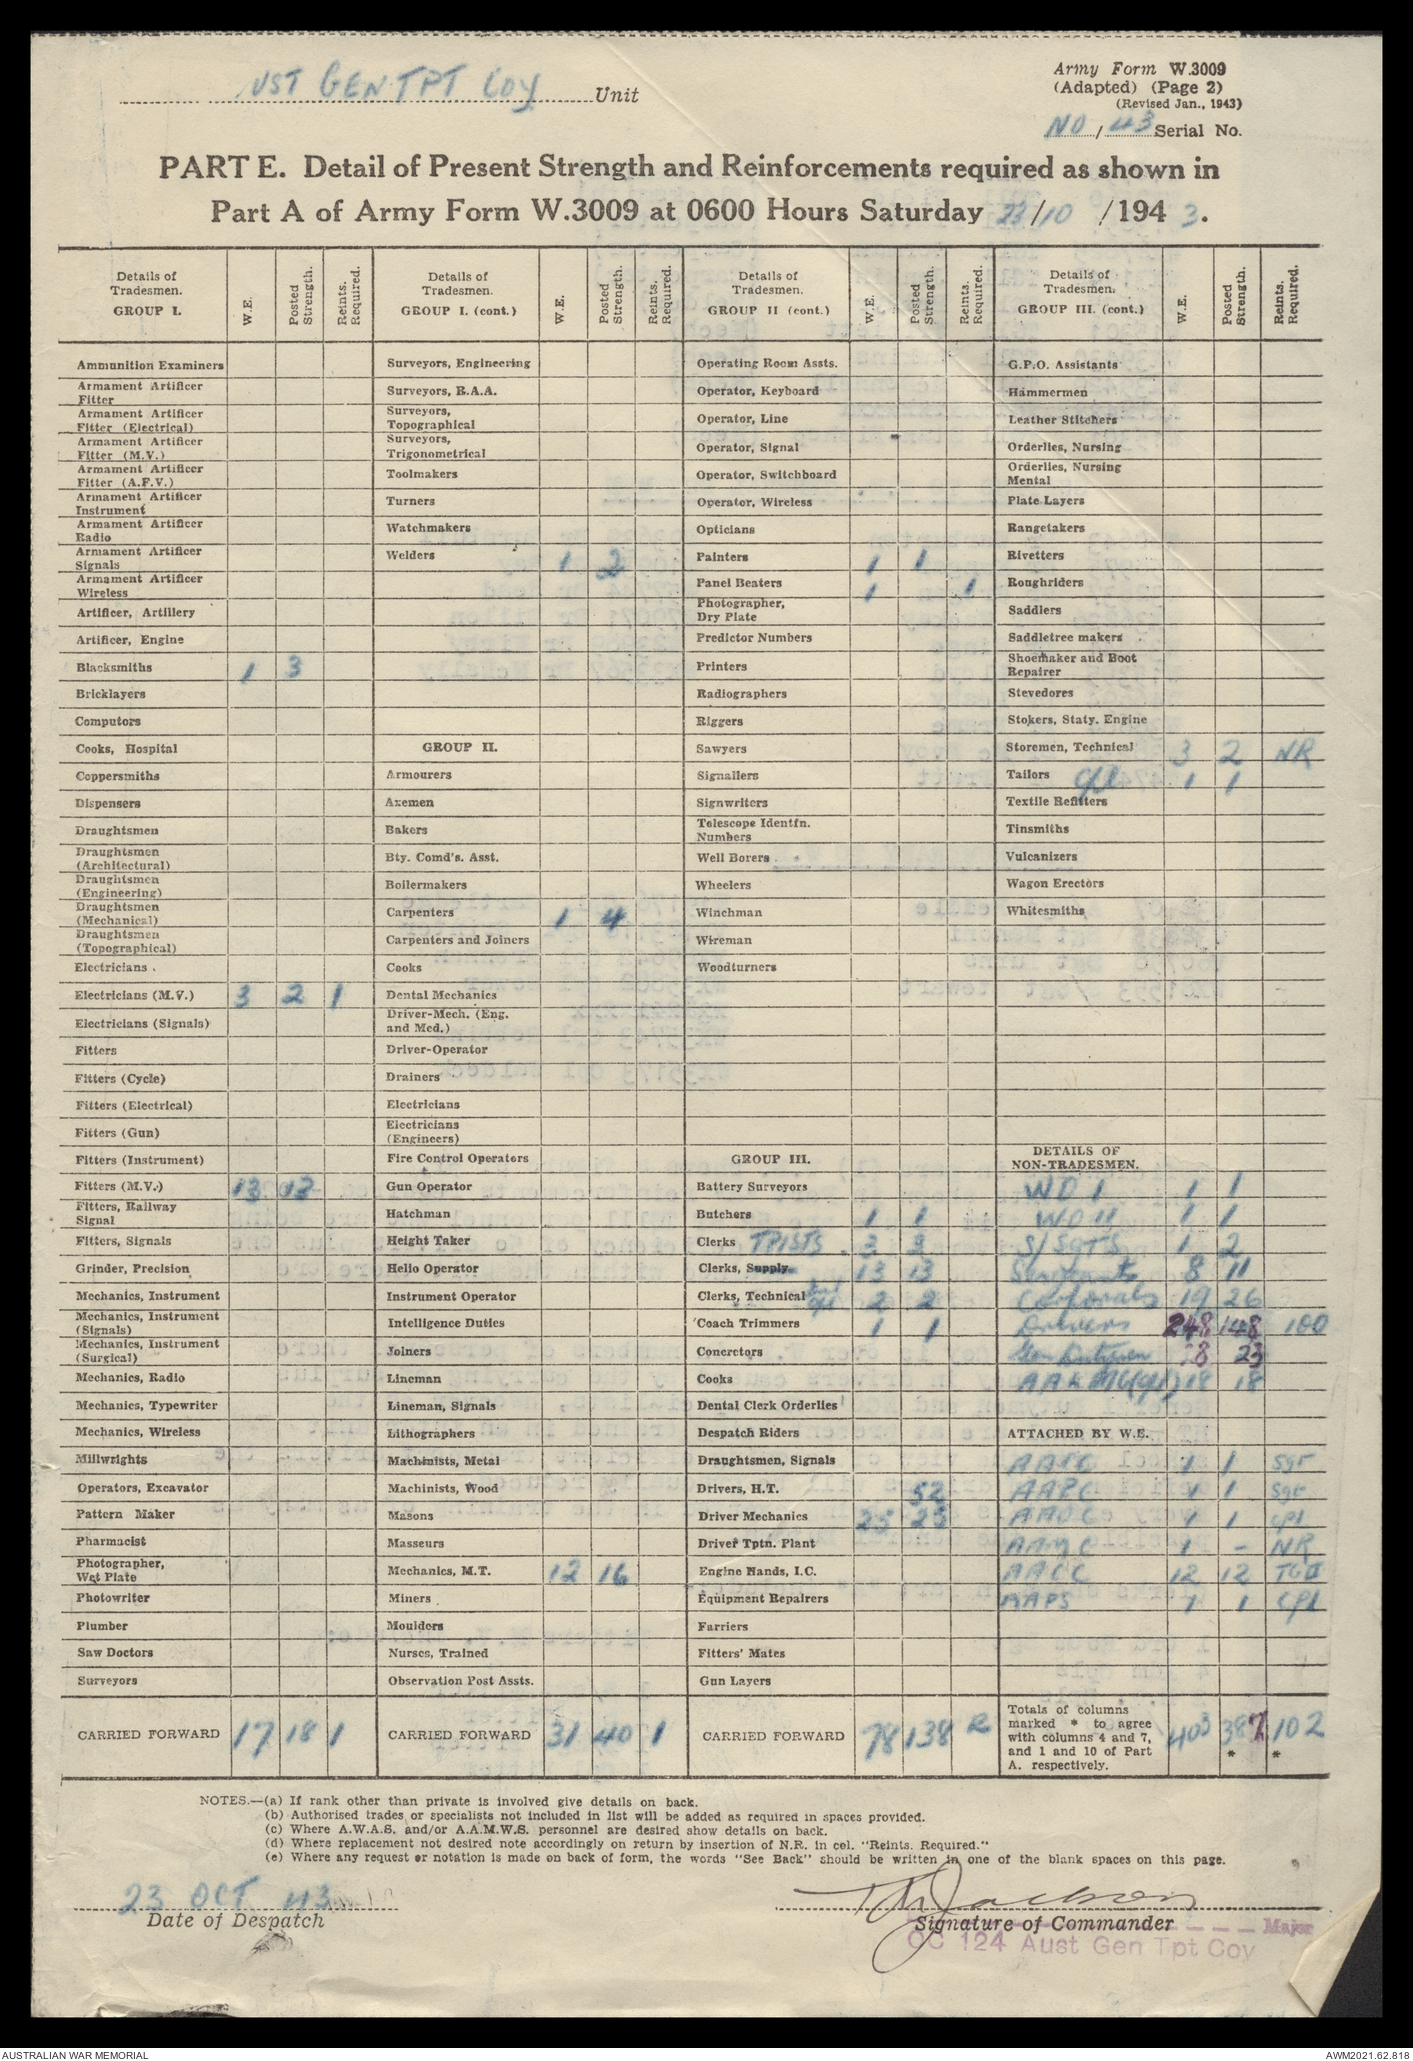 UST GEN TPT COY Unit
Army Form W.3009
(Adapted) (Page 2)
(Revised Jan., 1943)
NO / 43 Serial No.
PART E. Detail of Present Strength and Reinforcements required as shown in
Part A of Army Form W.3009 at 0600 Hours Saturday 23/10 /194 3.
Details of Tradesmen. GROUP I. W.E. Posted Strength. Reints. Required. Details of Tradesmen. GROUP I. (cont.) W.E. Posted Strength. Reints. Required. Details of Tradesmen. GROUP II (cont.) W.E. Posted Strength. Reints. Required. Details of Tradesmen. GROUP III. (cont.) W.E. Posted Strength. Reints. Required.
Ammunition Examiners Surveyors, Engineering Operating Room Assts. G.P.O. Assistants
Armament Artificer Fitter Surveyors, R.A.A. Operator, Keyboard Hammermen
Armament Artificer Fitter (Electrical) Surveyors, Topographical Operator, Line Leather Stitchers
Armament Artificer Fitter (M.V.) Surveyors, Trigonometrical Operator, Signal Orderlies, Nursing
Armament Artificer Fitter (A.F.V.) Toolmakers Operator, Switchboard Orderlies, Nursing Mental
Armament Artificer Instrument Turners Operator, Wireless Plate Layers
Armament Artificer Radio Watchmakers Opticians Rangetakers
Armament Artificer Signals Welders 1 2 Painters 1 1 Rivetters
Armament Artificer Wireless Panel Beaters 1 1 Roughriders
Artificer, Artillery Photographer, Dry Plate Saddlers
Artificer, Engine Predictor Numbers Saddletree makers
Blacksmiths 1 3 Printers Shoemaker and Boot Repairer
Bricklayers Radiographers Stevedores
Computors Riggers Stokers, Staty. Engine
Cooks, Hospital GROUP II. Sawyers Storemen, Technical 3 2 NR
Coppersmiths Armourers Signallers Tailors Cpl 1 1
Dispensers Axemen Signwriters Textile Refitters
Draughtsmen Bakers Telescope Identfn. Numbers Tinsmiths
Draughtsmen (Architectural) Bty. Comd's. Asst. Well Borers Vulcanizers
Draughtsmen (Engineering) Boilermakers Wheelers Wagon Erectors
Draughtsmen (Mechanical) Carpenters 1 4 Winchman Whitesmiths
Draughtsmen (Topographical) Carpenters and Joiners Wireman
Electricians Cooks Woodturners
Electricians (M.V.) 3 2 1 Dental Mechanics
Electricians (Signals) Driver-Mech. (Eng. and Med.)
Fitters Driver-Operator
Fitters (Cycle) Drainers
Fitters (Electrical) Electricians
Fitters (Gun) Electricians (Engineers)
Fitters (Instrument) Fire Control Operators GROUP III. DETAILS OF NON-TRADESMEN.
Fitters (M.V.) 13 13 Gun Operator Battery Surveyors WO I 1 1
Fitters, Railway Signal Hatchman Butchers 1 1 WO II 1 1
Fitters, Signals Height Taker Clerks TPISTS 3 3 S/SGTS 1 2
Grinder, Precision Hello Operator Clerks, Supply 13 13 Sergeants 8 11
Mechanics, Instrument Instrument Operator Clerks, Technical Cpl 2 2 Corporals 19 26
Mechanics, Instrument (Signals) Intelligence Duties Coach Trimmers 1 1 Drivers 248 148 100
Mechanics, Instrument (Surgical) Joiners Concretors Gen Dutymen 28 23
Mechanics, Radio Lineman Cooks AAKMG(cpl) 18 18
Mechanics, Typewriter Lineman, Signals Dental Clerk Orderlies
Mechanics, Wireless Lithographers Despatch Riders ATTACHED BY W.E.
Millwrights Machinists, Metal Draughtsmen, Signals 1 1 Sgt
Operators, Excavator Machinists, Wood Drivers, H.T. 52 AAPC 1 1 Sgt
Pattern Maker Masons Driver Mechanics 25 23 AAOC 1 1 cpl
Pharmacist Masseurs Driver Tptn. Plant AAMC 1 - NR
Photographer, Wet Plate Mechanics, M.T. 12 16 Engine Hands, I.C. AACC 12 12 TG II
Photowriter Miners Equipment Repairers AAPS 1 1 Cpl
Plumber Moulders Farriers
Saw Doctors Nurses, Trained Fitters' Mates
Surveyors Observation Post Assts. Gun Layers
CARRIED FORWARD 17 18 1 CARRIED FORWARD 31 40 1 CARRIED FORWARD 78 138 2 Totals of columns marked * to agree with columns 4 and 7, and 1 and 10 of Part A. respectively. 403 387 * 102 *
NOTES.—(a) If rank other than private is involved give details on back.
(b) Authorised trades or specialists not included in list will be added as required in spaces provided.
(c) Where A.W.A.S. and/or A.A.M.W.S. personnel are desired show details on back.
(d) Where replacement not desired note accordingly on return by insertion of N.R. in col. "Reints. Required."
(e) Where any request or notation is made on back of form, the words "See Back" should be written in one of the blank spaces on this page.
23 OCT 43
Date of Despatch
Jackson
Signature of Commander Major
OC 124 Aust Gen Tpt Coy
AUSTRALIAN WAR MEMORIAL
AWM2021.62.818